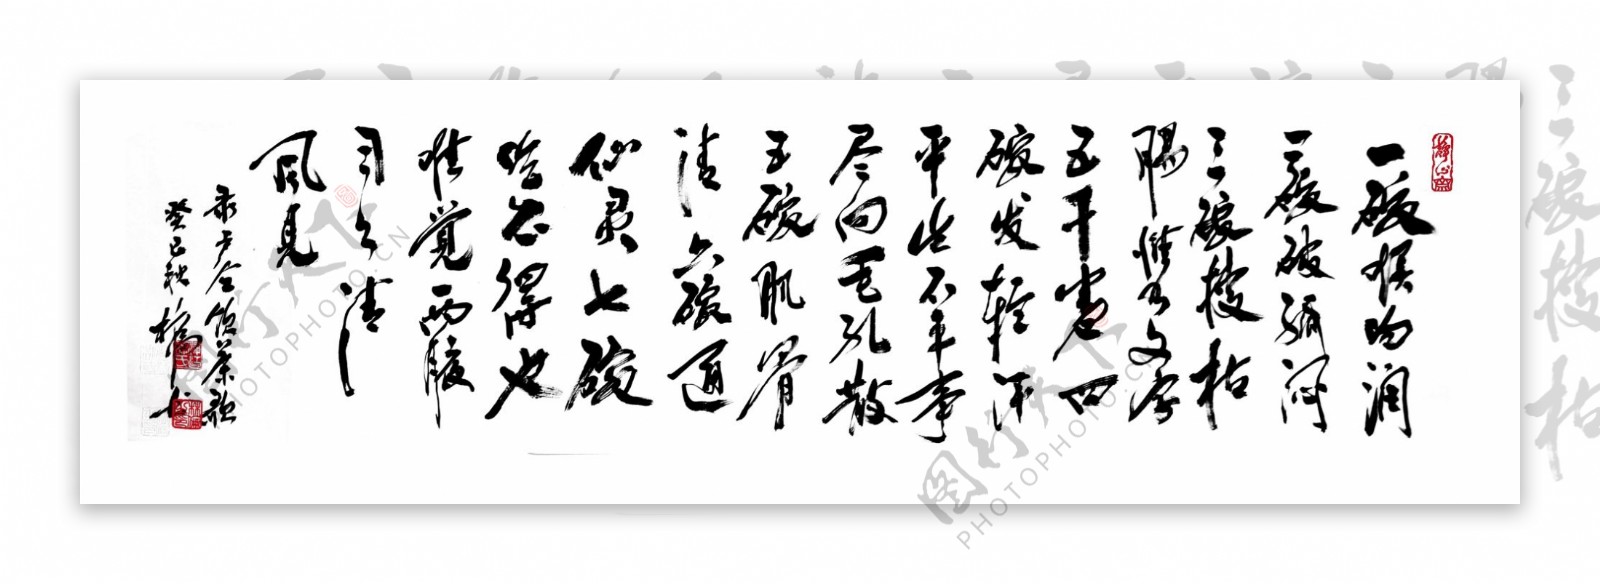 一碗喉吻润
二碗破孤闷
三碗搜枯
肠惟有文字
五千卷四
碗发轻汗
平生不平事
尽向毛孔散
五碗肌骨
清六碗通
仙灵七碗
吃不得也
唯觉两腋
习习清
风生
录卢仝饮茶歌
癸巳秋
图行天下
PHOTOPHOTO.CN